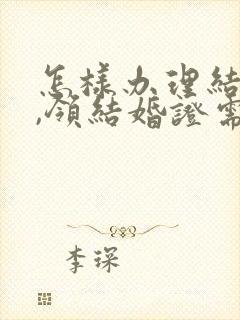 怎樣办理結
,領結婚證需
李琛